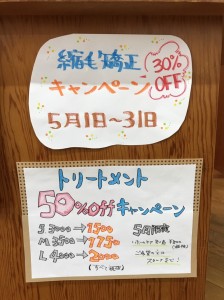 縮毛矯正
30%
OFF
キャンペーン
5月1日〜31日
トリートメント
50%Offキャンペーン
S 3000→1500
M 3500→1750
L 4000→2000
5月限定